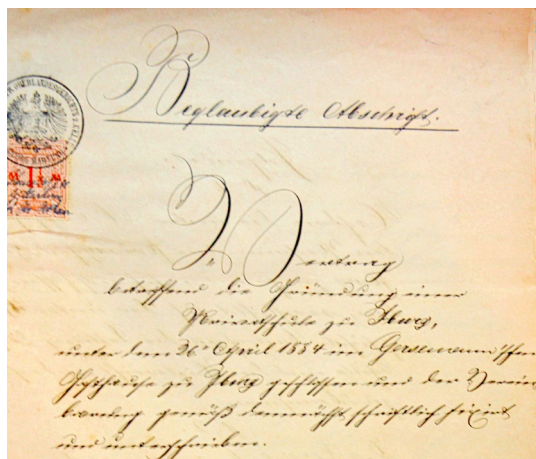 Beglaubigte Abschrift.
OBERLANDESGERICHTS
1 M
Vertrag
betreffend die Gründung einer
Privatschule zu Iburg,
unter dem 26ⁿ April 1884 im Gersemann'schen
Gasthause zu Iburg geschlossen und der Verein
barung gemäß demnächst schriftlich fixirt
und unterschrieben.